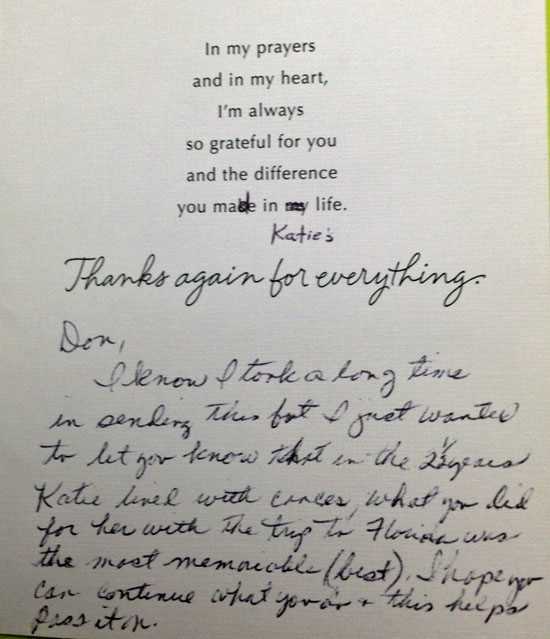 In my prayers
and in my heart,
I'm always
so grateful for you
and the difference
you made in my life.
Katie's
Thanks again for everything.
Don,
I know I took a long time
in sending this but I just wanted
to let you know that in the 2½ years
Katie lived with cancer, what you did
for her with the trip to Florida was
the most memorable (best). I hope you
can continue what you do + this helps
Pass it on.